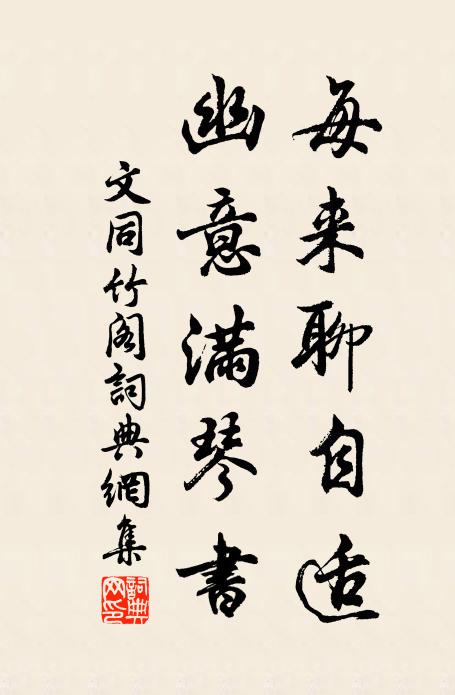 每来聊自适
幽意满琴書
文同竹阁詞典網集
詞典網印